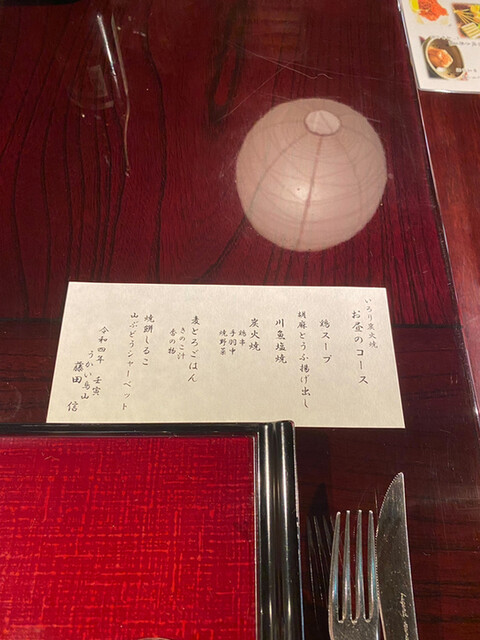 いろり炭火焼
お昼のコース
鶏スープ
胡麻とうふ揚げ出し
川魚塩焼
炭火焼
鶏串
手羽中
焼野菜
麦とろごはん
きのこ汁
香の物
焼餅しるこ
山ぶどうシャーベット
令和四年 壬寅
うかい鳥山
藤田 信